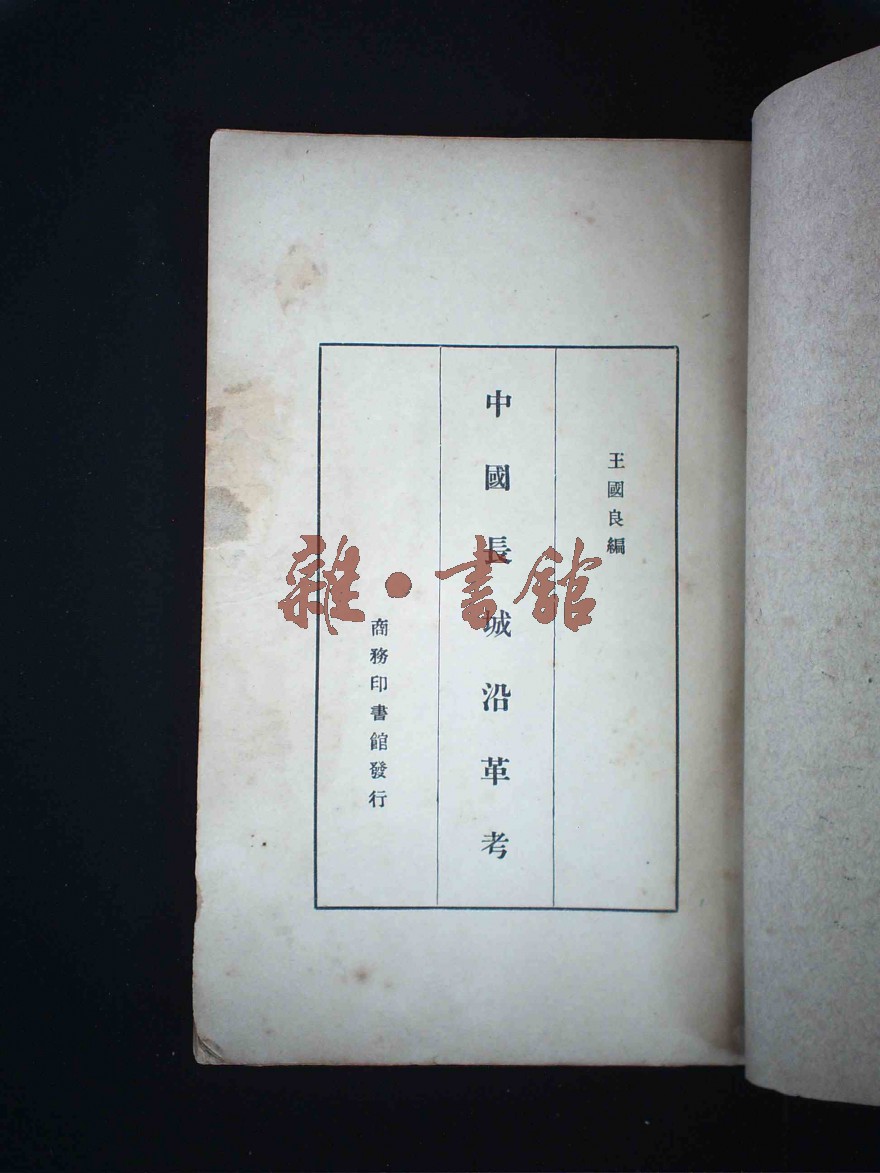 王國良編
中國長城沿革考
商務印書館發行
雜·書館